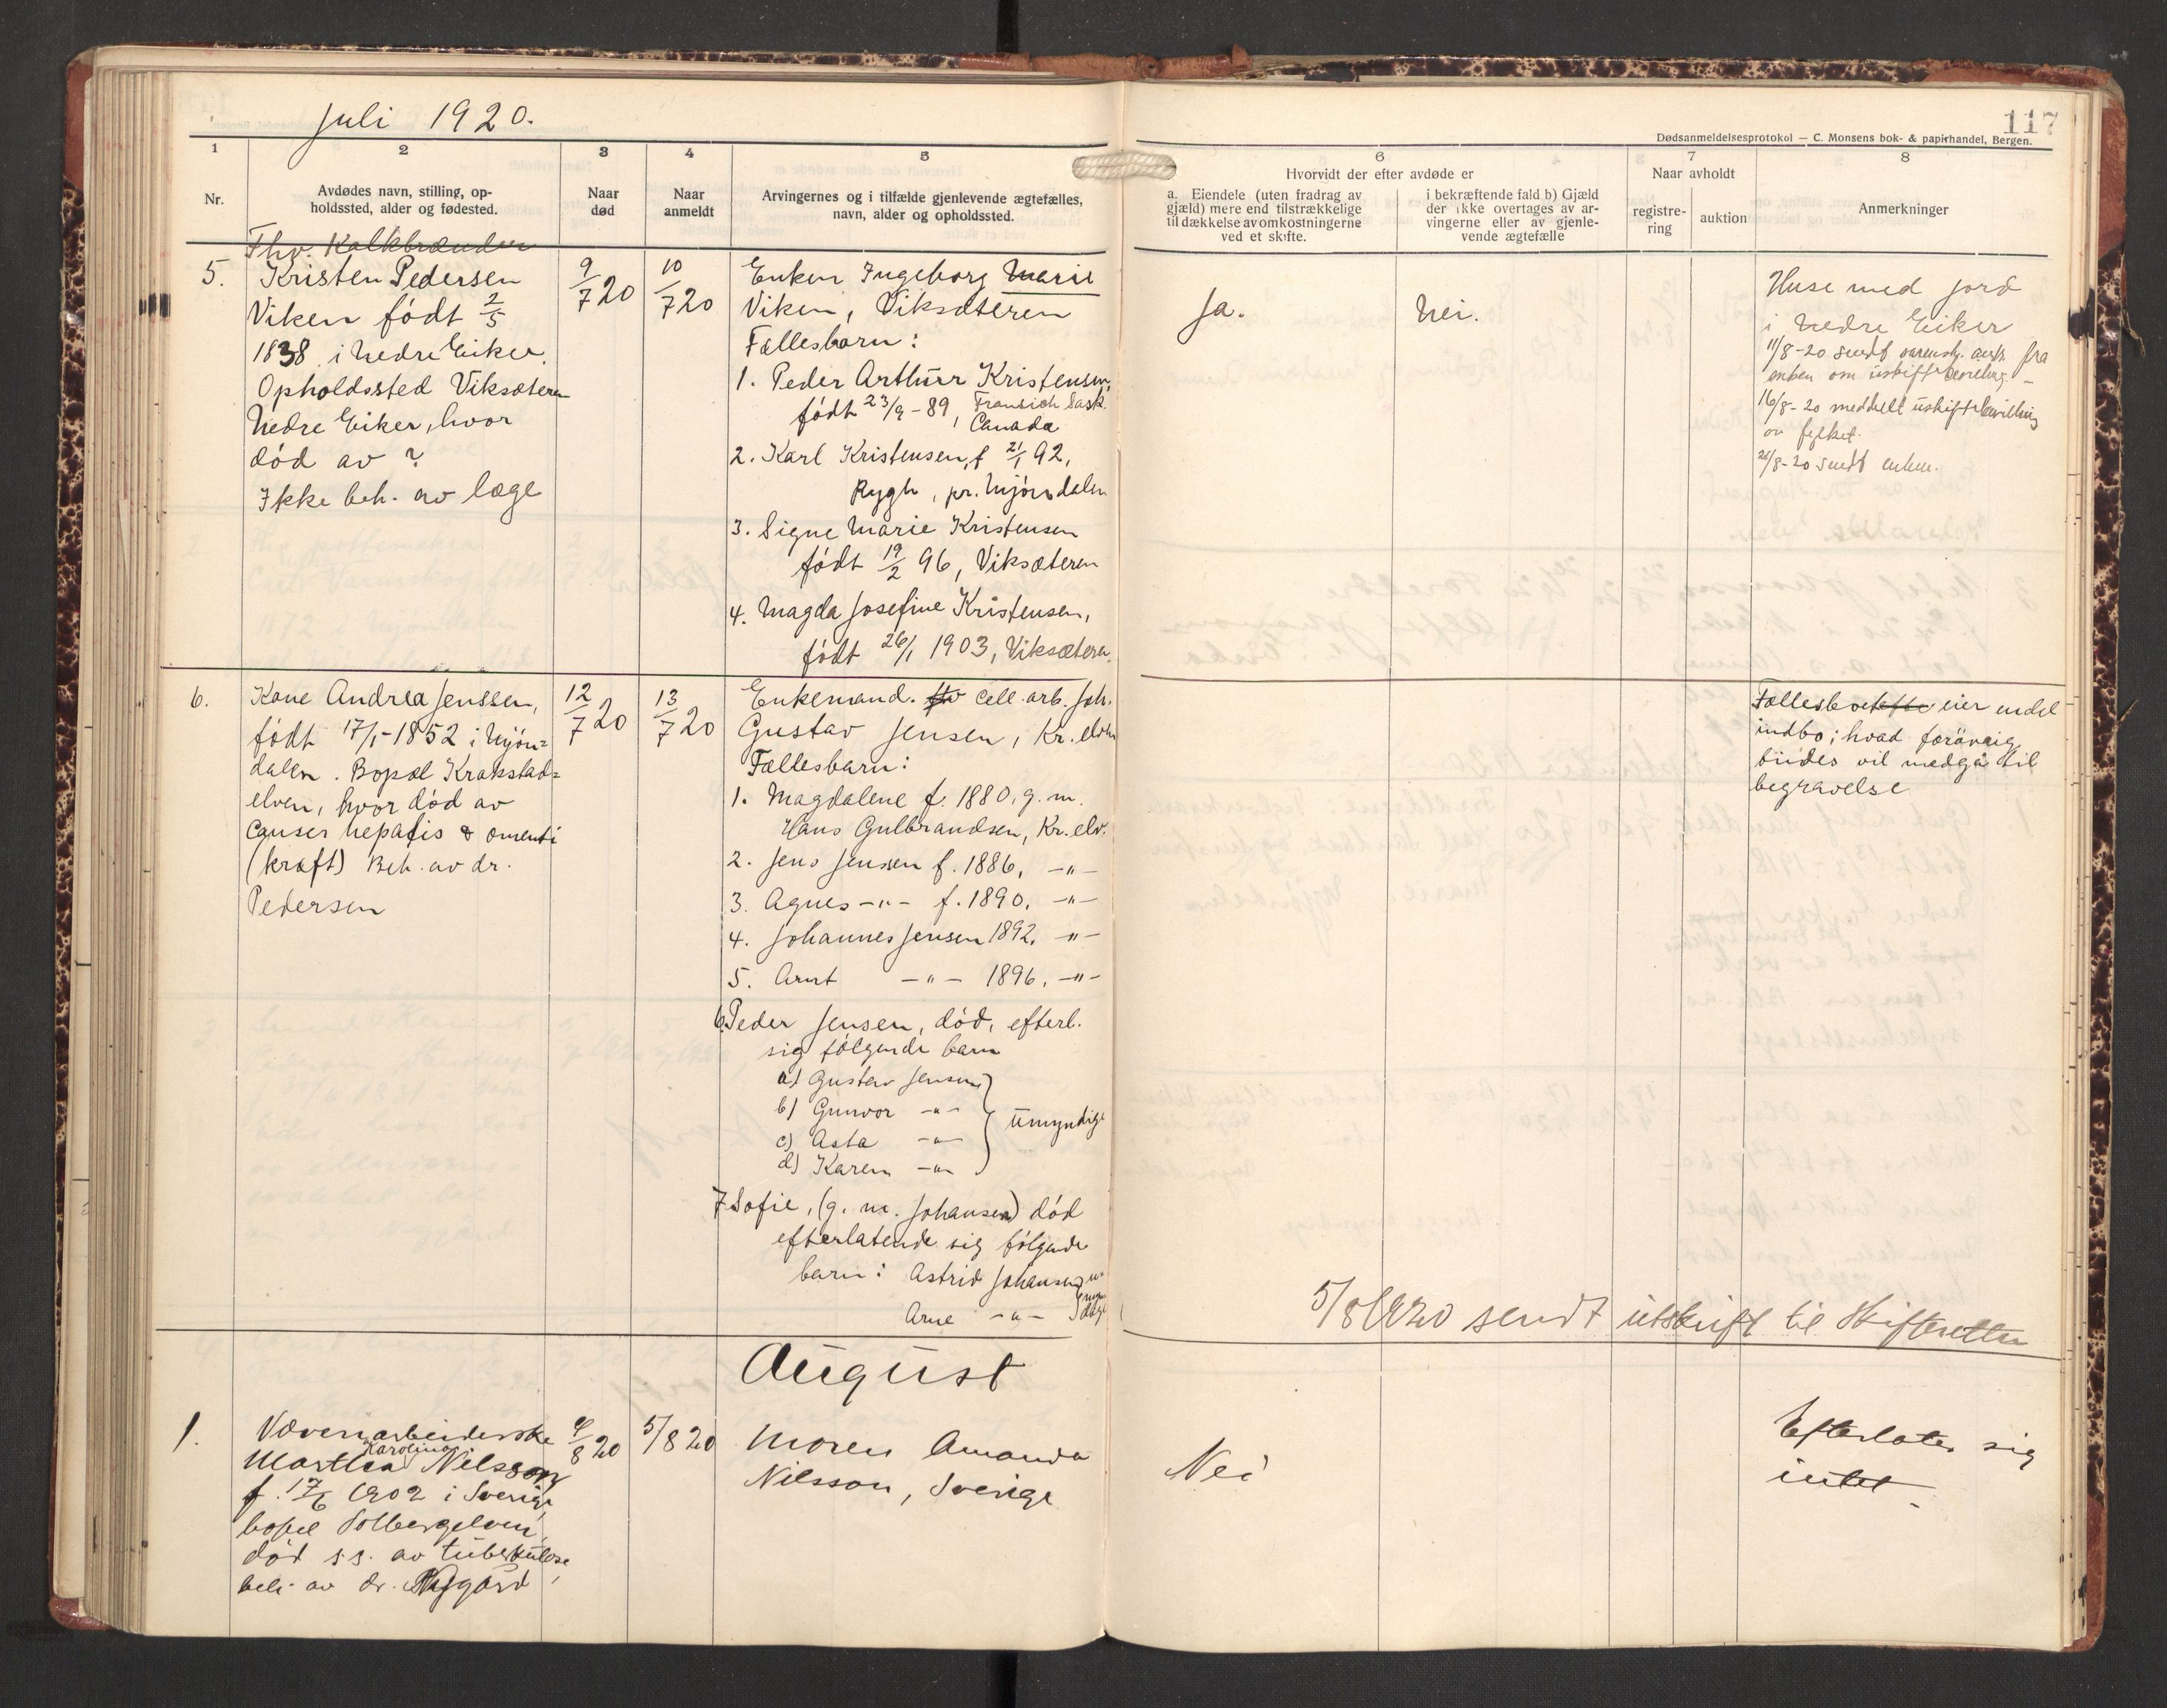 Juli 1920.
117
Dødsanmeldelsesprotokol — C. Monsens bok- & papirhandel, Bergen.
1
2
3
4
5
6
7
8
Nr.
Avdødes navn, stilling, op-
holdssted, alder og fødested.
Naar
død
Naar
anmeldt
Arvingernes og i tilfælde gjenlevende ægtefælles,
navn, alder og opholdssted.
Hvorvidt der efter avdøde er
a. Eiendele (uten fradrag av
gjæld) mere end tilstrækkelige
til dækkelse av omkostningerne
ved et skifte.
i bekræftende fald b) Gjæld
der ikke overtages av ar-
vingerne eller av gjenle-
vende ægtefælle
Naar avholdt
registre-
ring
auktion
Anmerkninger
Fhv. Kalkbrænder
5.
Kristen Pedersen
Viken født 2/5
1838 i Nedre Eiker.
Opholdssted Viksæteren
Nedre Eiker, hvor
død av ?
Ikke beh. av læge
9/7 20
10/7 20
Enken Ingeborg Marie
Viken, Viksæteren
Fællesbarn:
1. Peder Arthur Kristensen,
født 23/9-89, Sask.
Canada
2. Karl Kristensen, f 21/1 92,
Rygh, pr. Mjøndalen
3. Signe Marie Kristensen
født 19/2 96, Viksæteren
4. Magda Josefine Kristensen,
født 26/1 1903, Viksæteren.
Ja.
Nei.
Huse med jord
i Nedre Eiker
11/8-20 sendt fra
enken om uskiftebevilling. –
16/8-20 meddelt uskiftebevilling
av fylket.
/8-20 sendt enken.
6.
Kone Andrea Jenssen,
født 17/1-1852 i Mjøn=
dalen. Bopæl Krokstad=
elven, hvor død av
Cancer hepatis & omenti
(kræft) Beh. av dr.
Pedersen
12/7 20
13/7 20
Enkemand. fhv cell. arb. Joh.
Gustav Jensen, Kr. elven
Fællesbarn:
1. Magdalene f. 1880, g. m.
Hans Gulbrandsen, Kr. elv.
2. Jens Jensen f. 1886, –"–
3. Agnes –"– f. 1890, –"–
4. Johannes Jensen 1892, –"–
5. Arnt –"– 1896, –"–
6. Peder Jensen, død, efterl.
sig følgende barn
a) Gustav Jensen
b) Gunvor –"–
c) Asta –"–
d) Karen –"–
umyndige
7 Sofie, (g. m. Johansen) død
efterlatende sig følgende
barn: Astrid Johansen
Arne –"–
umyndige
Fællesboet efte eier endel
indbo; hvad forøvrig
findes vil medgå til
begravelse
5/8 1920 sendt utskrift til Skifteretten
August
1.
Væveriarbeiderske
Karolina
Martha Nilsson
f. 17/6 1902 i Sverige,
bopæl Solbergelven,
død s.s. av tuberkulose,
beh. av dr. Nygård
4/8 20
5/8 20
Moren Amanda
Nilsson, Sverige
Nei
Efterlater sig
intet –